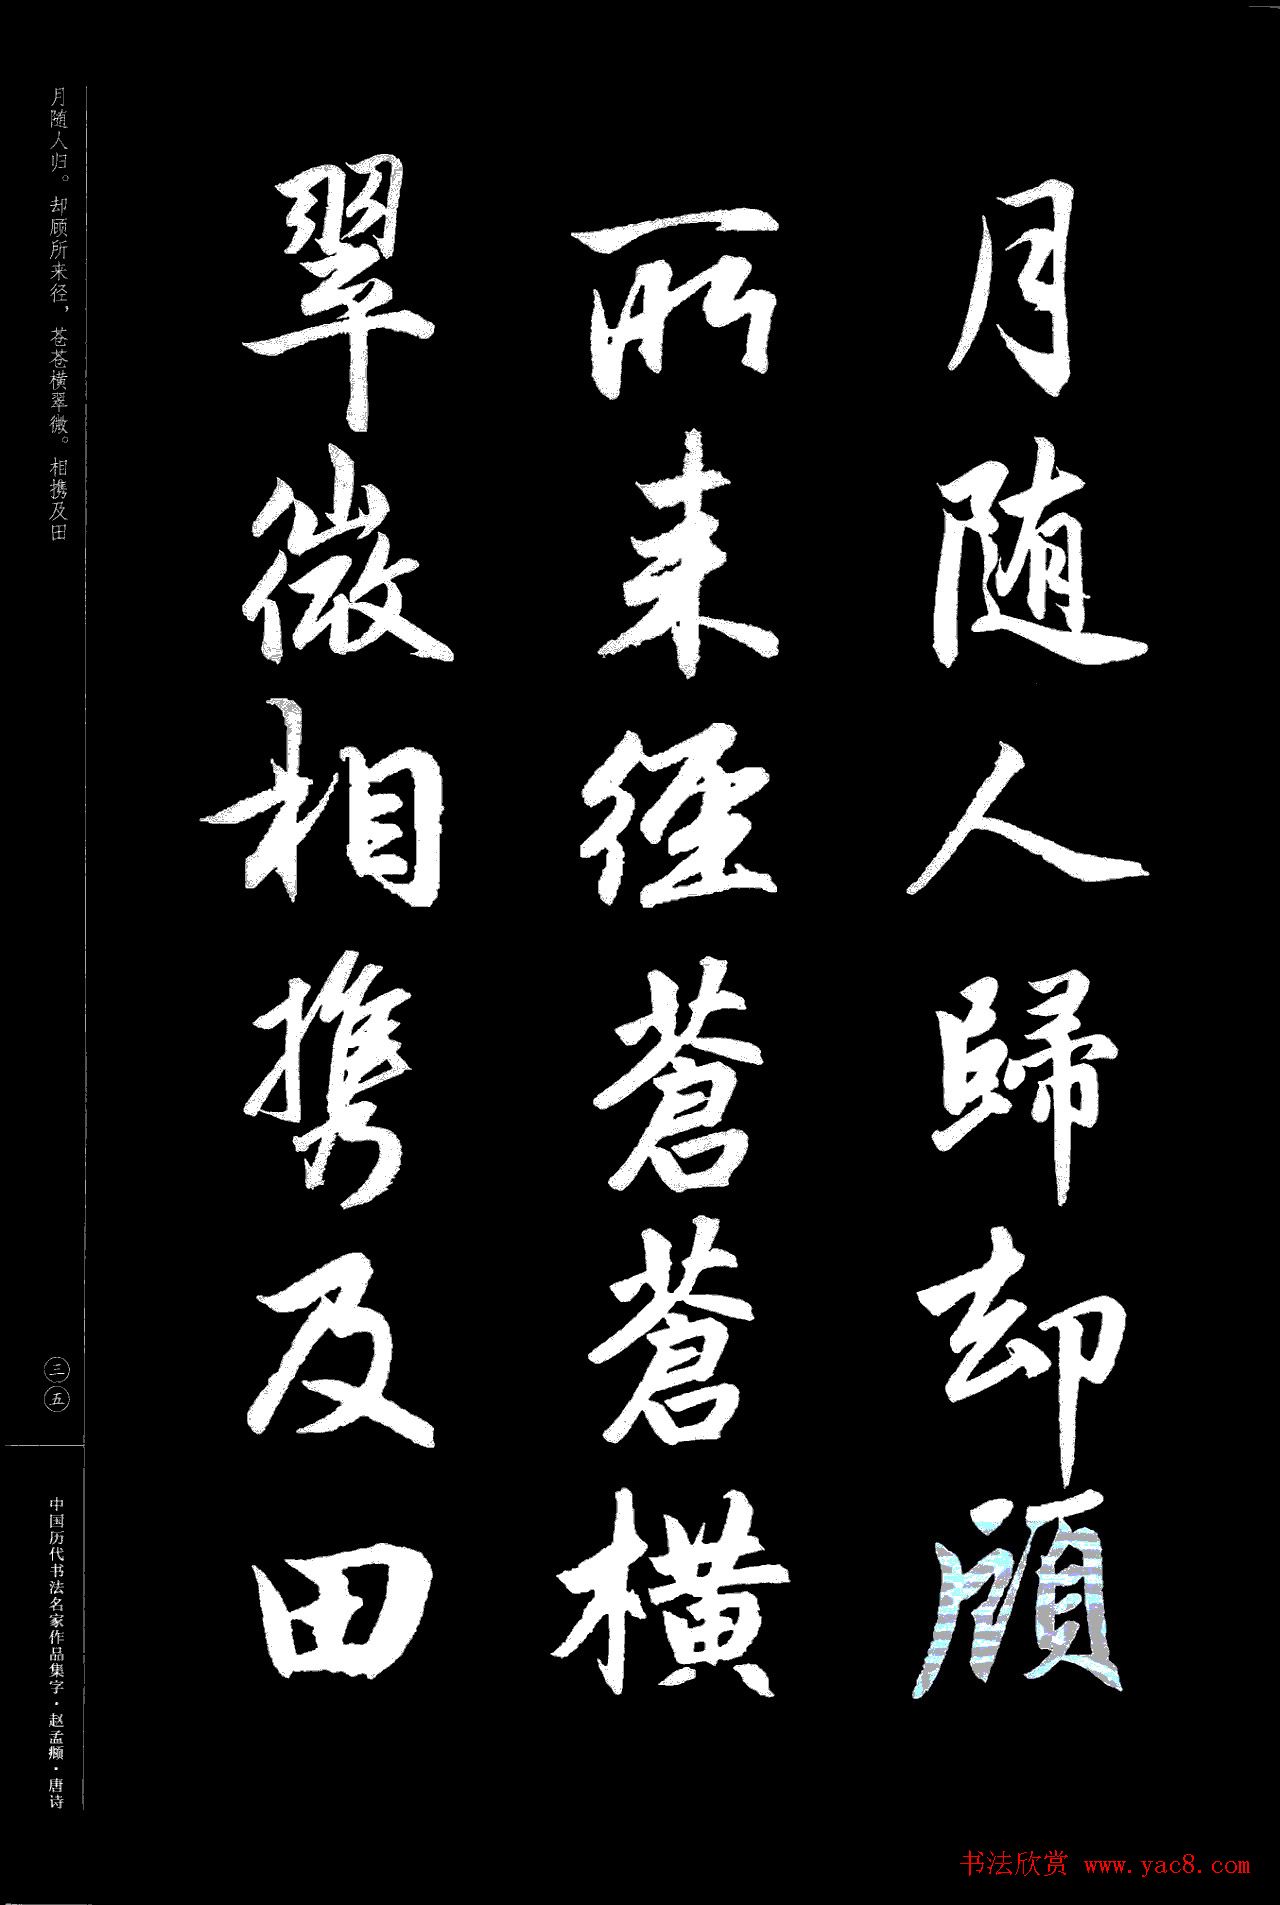 月随人歸却顧
所来径蒼蒼橫
翠微相携及田
月随人归。却顾所来径，苍苍横翠微。相携及田
三五
中国历代书法名家作品集字·赵孟頫·唐诗
书法欣赏 www.yac8.com